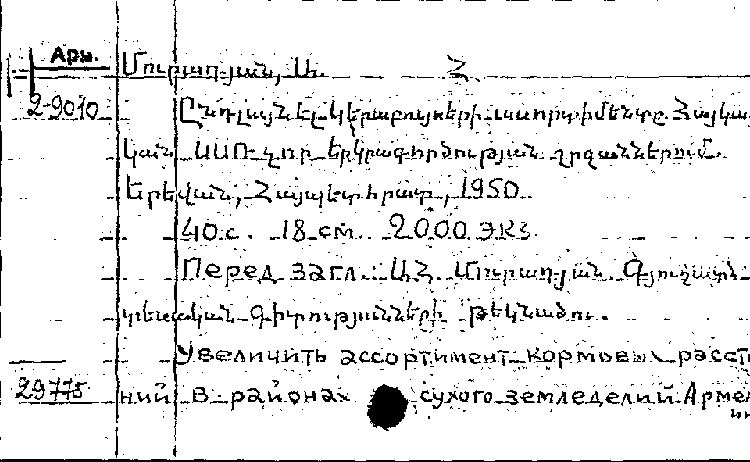 Арм.
Մուրադյան, Ա. Հ.
2-9010 Ընդլայնել կերաբույսերի ասորտիմենտը Հայկա
կան ՍՍՌ չոր երկրագործության շրջաններում.
Երևան, Հայպետհրատ, 1950
40 с. 18 см. 2000 экз.
Перед загл.: Ա.Հ. Մուրադյան. Գյուղատն
տեսական գիտությունների թեկնածու.
Увеличить ассортимент кормовых расте
29775 ний в районах сухого земледелия Арме